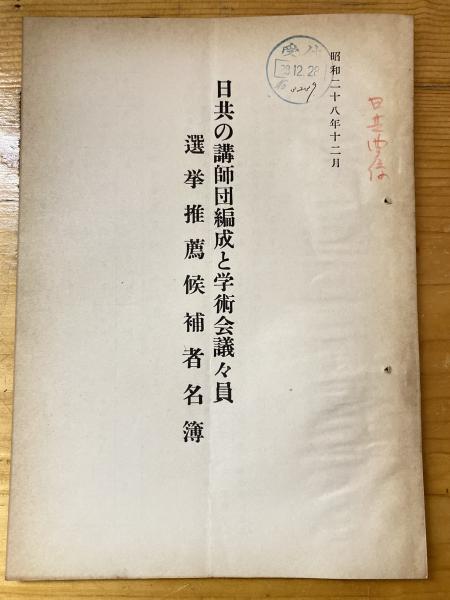 昭和二十八年十二月
日共の講師団編成と学術会議々員
選挙推薦候補者名簿
受
28.12.28
日共